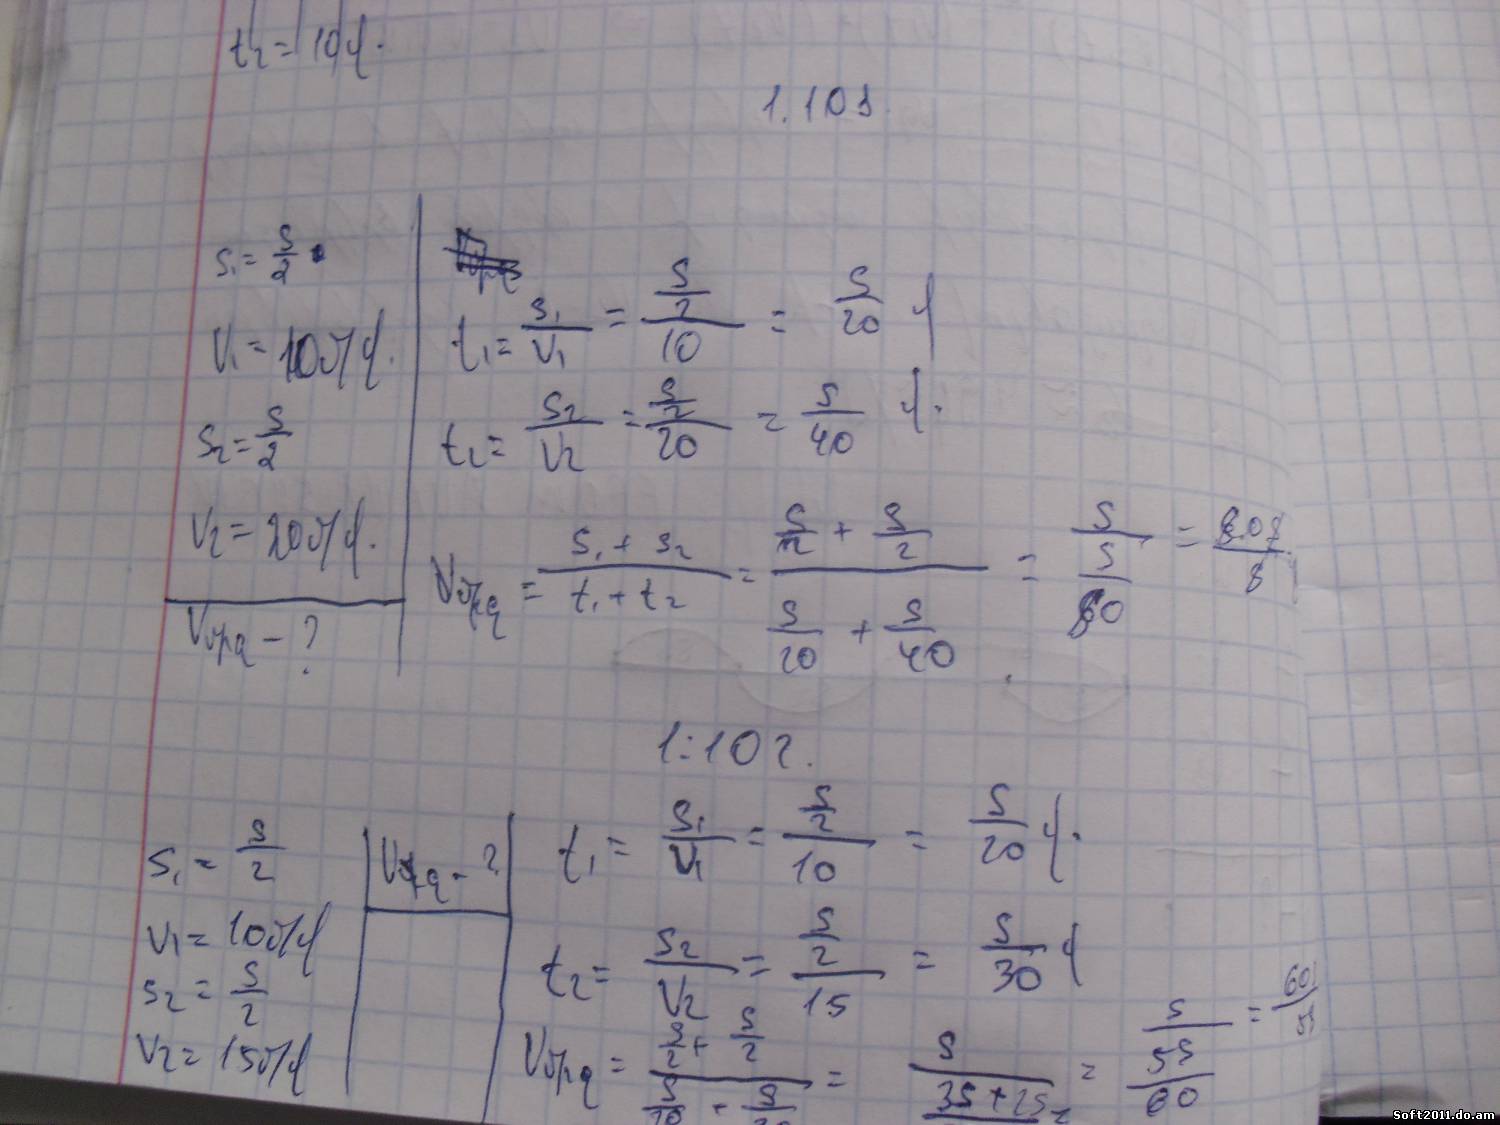 t₂ = 10 վ.
1.101.
S₁ = S/2
V₁ = 10 մ/վ.
S₂ = S/2
V₂ = 20 մ/վ.
Vմիջ - ?
t₁ = S₁/V₁ = (S/2)/10 = S/20 վ
t₂ = S₂/V₂ = (S/2)/20 = S/40 վ.
Vմիջ = (S₁ + S₂)/(t₁ + t₂) = (S/2 + S/2)/(S/20 + S/40) = S/(S/60) =
1.102.
S₁ = S/2
V₁ = 10 մ/վ
S₂ = S/2
V₂ = 15 մ/վ
t₁ = S₁/V₁ = (S/2)/10 = S/20 վ.
t₂ = S₂/V₂ = (S/2)/15 = S/30 վ
Vմիջ = (S/2 + S/2)/ = S/(3S + 2S) = S/(5S/60) =
Soft2011.do.am